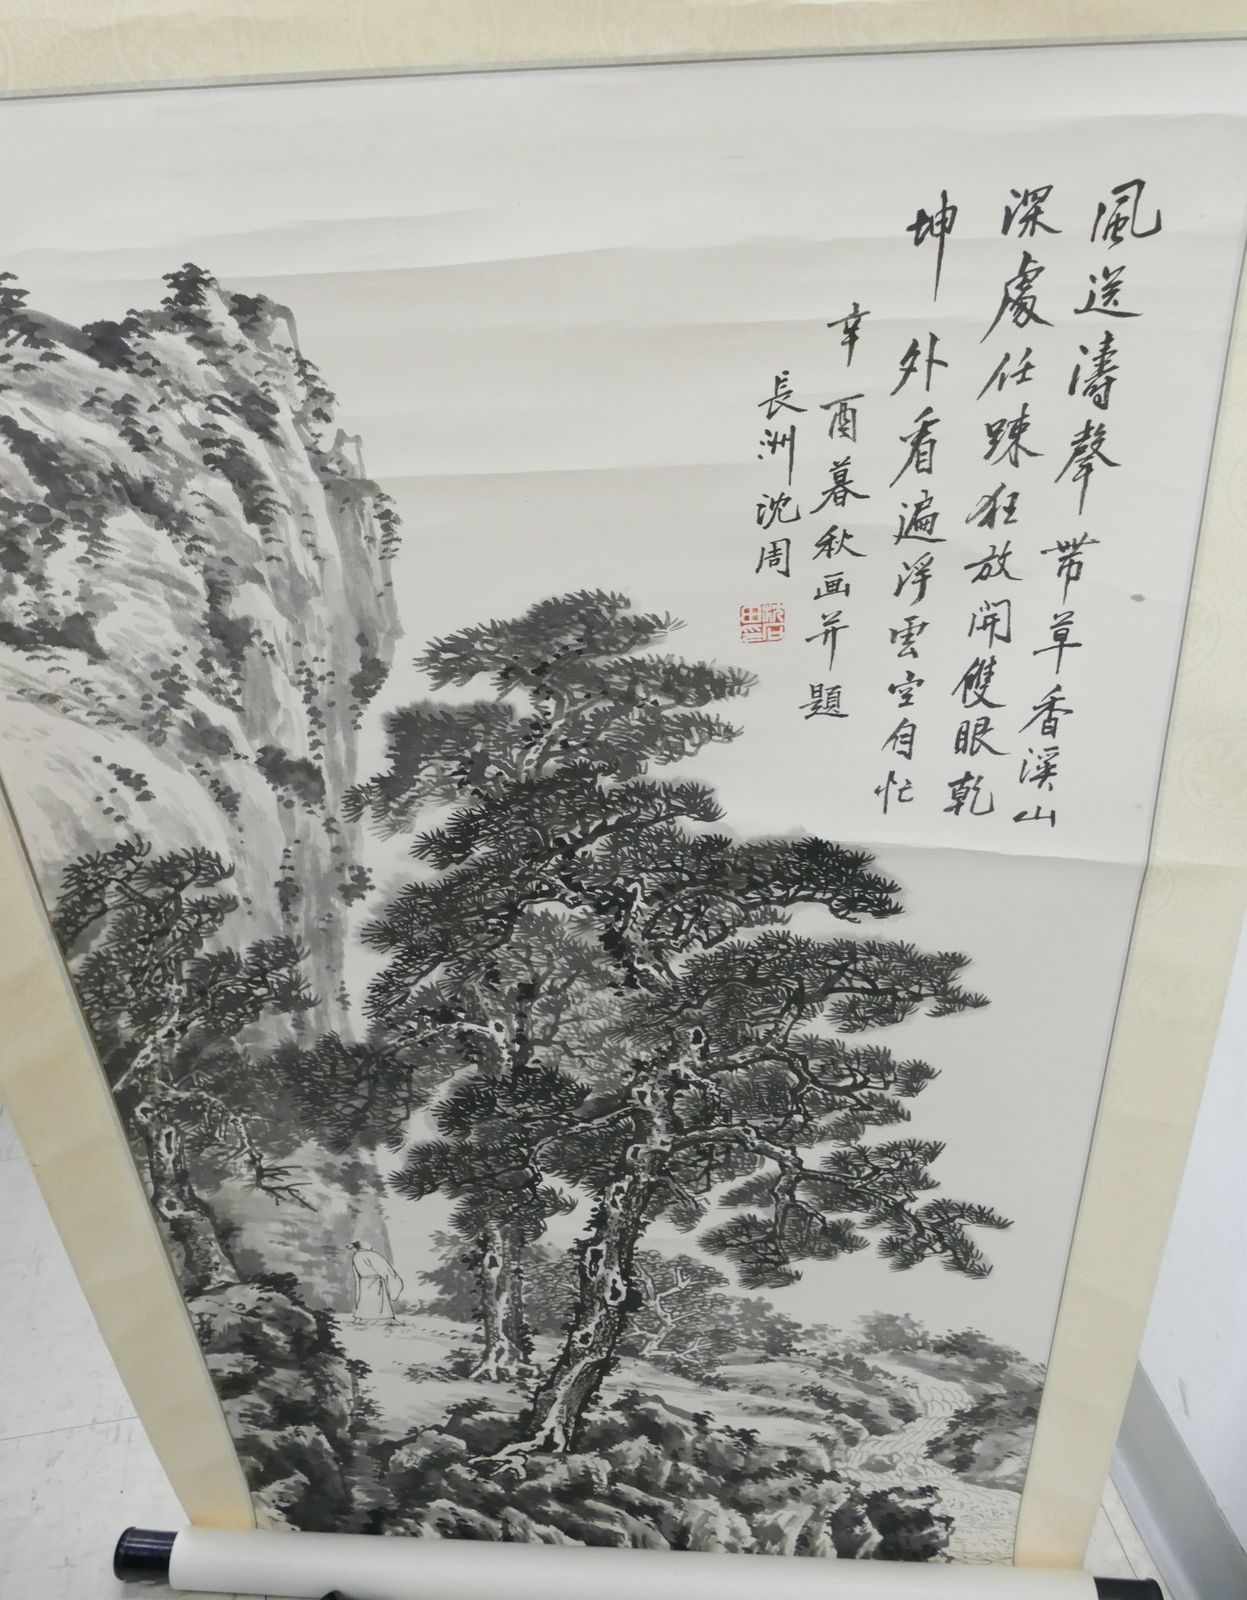 風送濤聲帶草香溪山
深處任踈狂放開雙眼乾
坤外看遍浮雲空自忙
辛酉暮秋画并題
長洲沈周